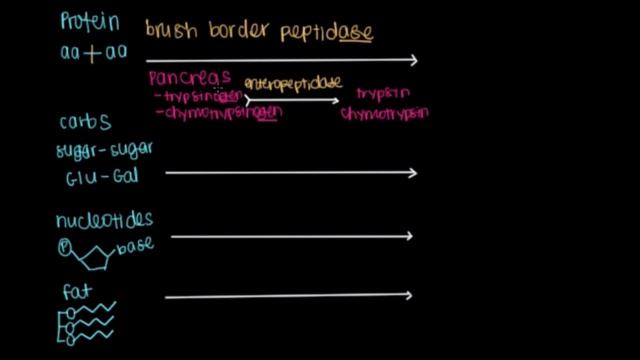 Protein
brush border peptidase
aa + aa
Pancreas
enteropeptidase
- trypsinogen
trypsin
- chymotrypsinogen
chymotrypsin
carbs
sugar - sugar
Glu - Gal
nucleotides
P
base
fat
O
O
O